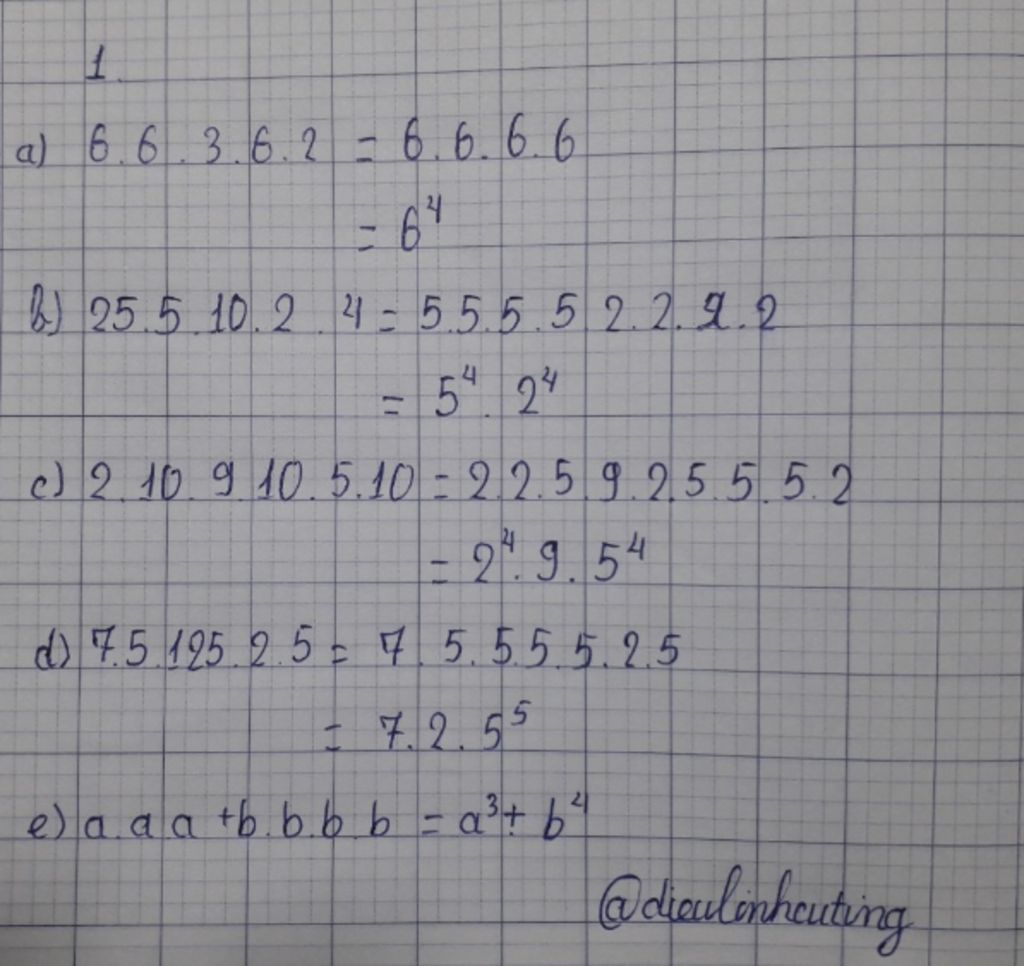 1.
a) 6.6.3.6.2 = 6.6.6.6
= 6⁴
b) 25.5.10.2.4 = 5.5.5.5.2.2.2.2
= 5⁴.2⁴
c) 2.10.9.10.5.10 = 2.2.5.9.2.5.5.5.2
= 2⁴.9.5⁴
d) 7.5.125.2.5 = 7.5.5.5.5.2.5
= 7.2.5⁵
e) a.a.a + b.b.b.b = a³ + b⁴
@dieulinhcuting